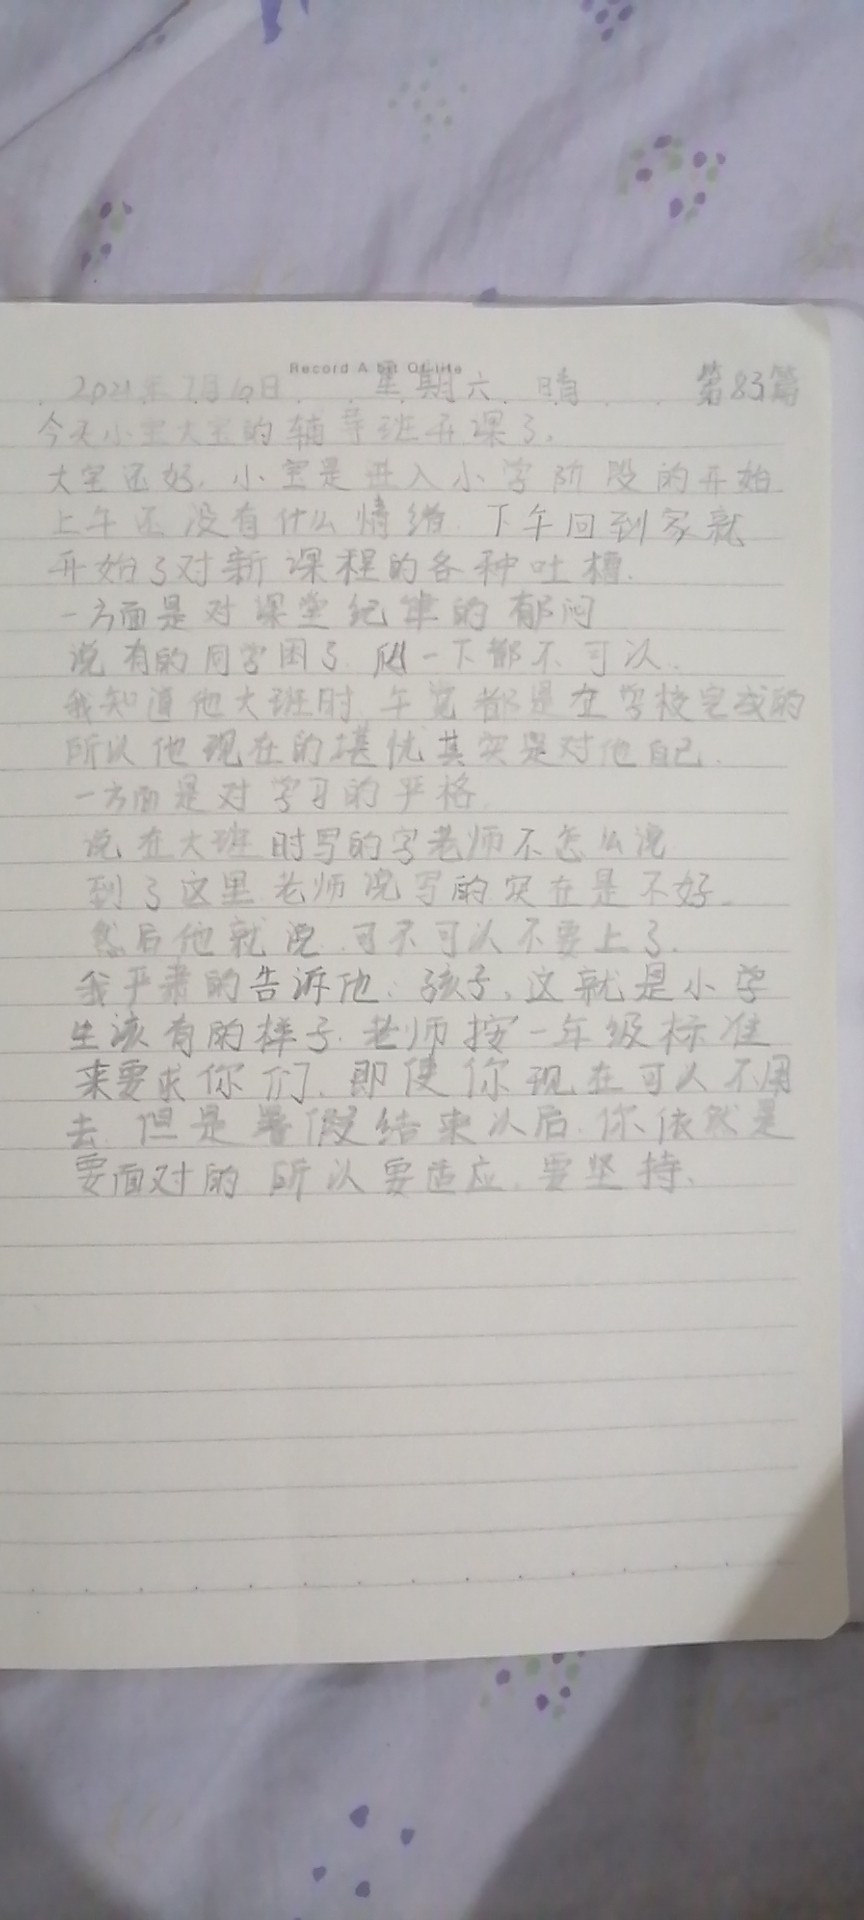 Record A bit Of life
2021年7月10日 星期六 晴 第83篇
今天小宝大宝的辅导班开课了.
大宝还好.小宝是进入小学阶段的开始.
上午还没有什么情绪.下午回到家就
开始了对新课程的各种吐槽.
一方面是对课堂纪律的郁闷
说有的同学困了 趴一下都不可以.
我知道他大班时 午觉都是在学校完成的
所以他现在的堪忧其实是对他自己.
一方面是对学习的严格.
说在大班时写的字老师不怎么说
到了这里老师说写的实在是不好.
然后他就说.可不可以不要上了.
我严肃的告诉他:孩子,这就是小学
生该有的样子.老师按一年级标准
来要求你们.即使你现在可以不用
去.但是暑假结束以后.你依然是
要面对的 所以要适应.要坚持.